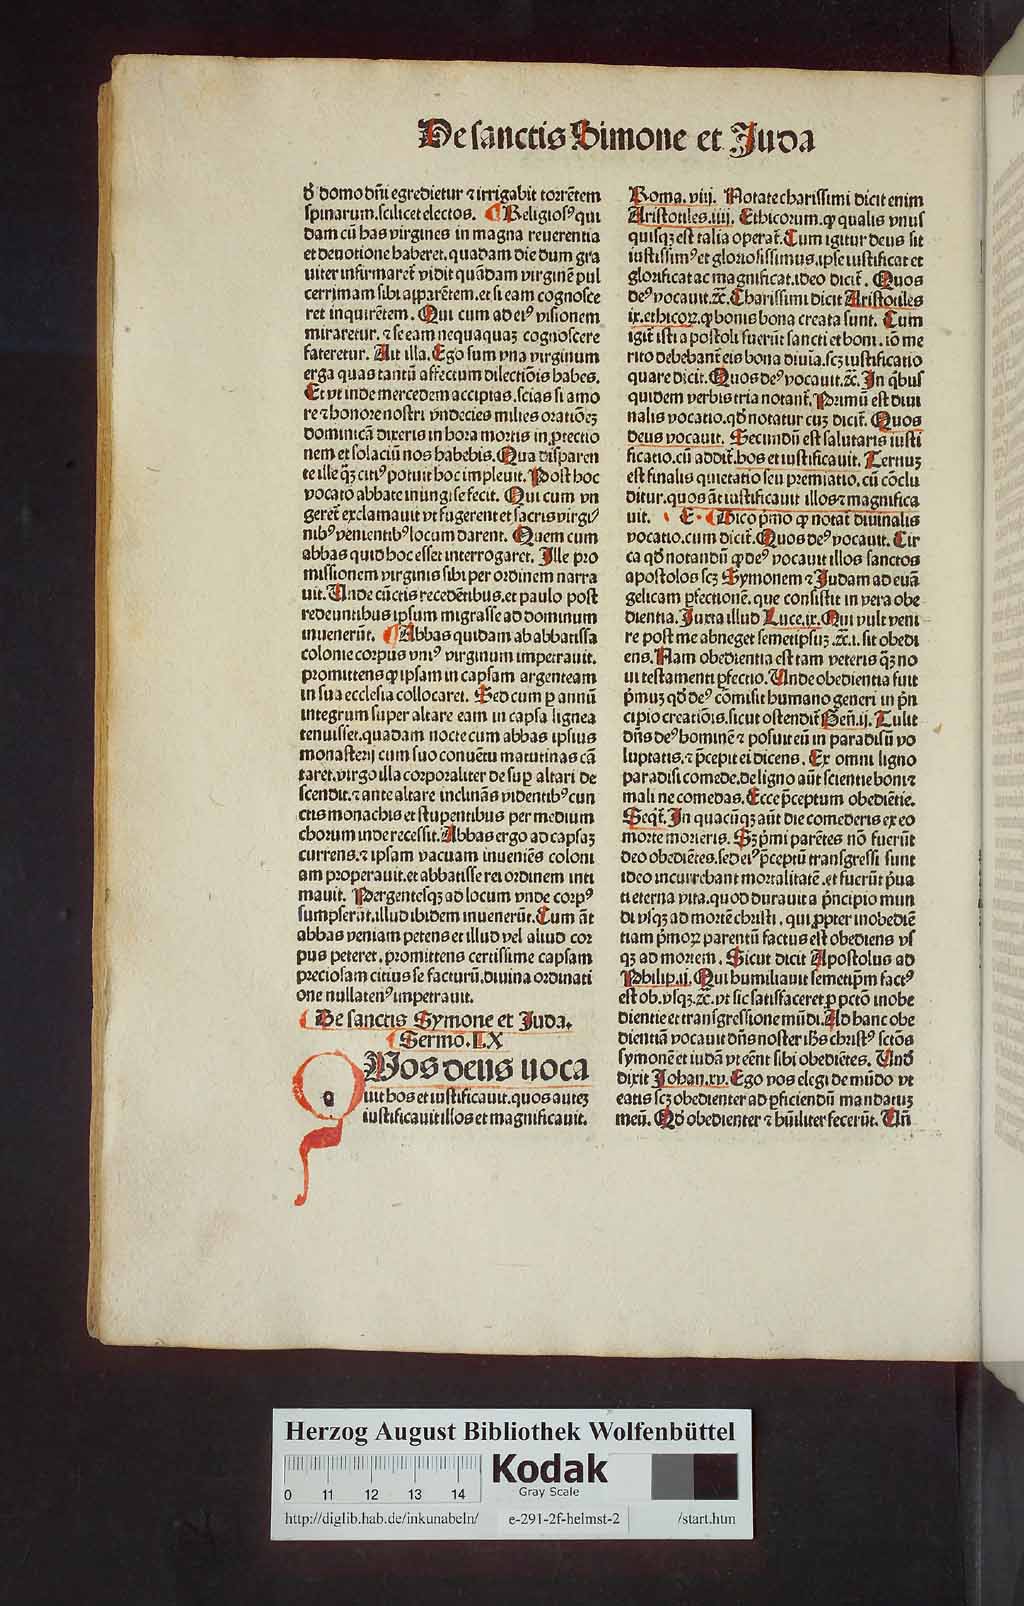 De sanctis Simone et Juda
đ domo dñi egredietur ⁊ irrigabit torrētem
spinarum.scilicet electos. ¶ Religiosꝰ qui
dam cū has virgines in magna reuerentia
et deuotione haberet.quadam die dum gra
uiter infirmaret᷑ vidit quādam virginē pul
cerrimam sibi apparētem.et si eam cognosce
ret inquirētem. Qui cum ad eiꝰ visionem
miraretur. ⁊ se eam nequaquaꝫ cognoscere
fateretur. Ait illa. Ego sum vna virginum
erga quas tantū affectum dilectiōis habes.
Et vt inde mercedem accipias.scias si amo
re ⁊ honore nostri vndecies milies orationēꝫ
dominicā dixeris in hora mortis in ꝓtectio
nem et solaciū nos habebis. Qua disparen
te ille qꝫ citiꝰ potuit hoc impleuit. Post hoc
vocato abbate inūngi se fecit. Qui cum vn
geret᷑ exclamauit vt fugerent et sacris virgīꝰ
nibꝰ venientibꝰ locum darent. Quem cum
abbas quid hoc esset interrogaret. Ille pro
missionem virginis sibi per ordinem narra
uit. Unde cūctis recedētibus.et paulo post
redeuntibus ipsum migrasse ad dominum
inuenerūt. ¶ Abbas quidam ab abbatissa
colonie corpus vniꝰ virginum impetrauit.
promittens ꝙ ipsam in capsam argenteam
in sua ecclesia collocaret. Sed cum ꝑ annū
integrum super altare eam in capsa lignea
tenuisset.quadam nocte cum abbas ipsius
monasterij cum suo conuētu matutinas cā
taret.virgo illa corporaliter de suꝑ altari de
scendit.⁊ ante altare inclināˢ videntibꝰ cun
ctis monachis et stupentibus per medium
chorum inde recessit. Abbas ergo ad capsaꝫ
currens.⁊ ipsam vacuam inueniēs coloni
am properauit.et abbatisse rei ordinem inti
mauit. Pergentesqꝫ ad locum vnde corpꝰ
sumpserāt.illud ibidem inuenerūt. Cum āt
abbas veniam petens et illud vel aliud cor
pus peteret.promittens certissime capsam
preciosam citius se facturū.diuina ordinati
one nullatenꝰ impetrauit.
¶ De sanctis Symone et Juda.
¶ Sermo.LX
QVos deus uoca
uit hos et iustificauit.quos auteꝫ
iustificauit illos et magnificauit.
Roma.viij. Notate charissimi dicit enim
Aristotiles.iiij. Ethicorum.ꝙ qualis vnus
quisqꝫ est talia operat᷑. Cum igitur deus sit
iustissimꝰ et gloriosissimus.ipse iustificat et
glorificat ac magnificat.ideo dicit᷑. Quos
deꝰ vocauit.⁊c̄. Charissimi dicit Aristotiles
ix.ethicoꝝ.ꝙ bonis bona creata sunt. Cum
igit᷑ isti apostoli fuerūt sancti et boni.iō me
rito debebant᷑ eis bona diuīa.scꝫ iustificatio
quare dicit. Quos deꝰ vocauit.⁊c̄. In q̄bus
quidem verbis tria notant᷑. Primū est diui
nalis vocatio.qđ notatur cuꝫ dicit᷑. Quos
deus vocauit. Secundū est salutaris iusti
ficatio.cū addit᷑.hos et iustificauit. Tertiuꝫ
est finalis quietatio seu premiatio.cū cōclu
ditur.quos āt iustificauit illos⁊magnifica
uit. ¶ Dico p̄mo ꝙ notat᷑ diuinalis
vocatio.cum dicit᷑. Quos deꝰ vocauit. Cir
ca qđ notandū ꝙ deꝰ vocauit illos sanctos
apostolos scꝫ Symonem ⁊ Judam ad euā
gelicam ꝑfectionē.que consistit in vera obe
dientia. Juxta illud Luce.ix. Qui vult veni
re post me abneget semetipsuꝫ.⁊c̄.i.sit obedi
ens. Nam obedientia est tam veteris qꝫ no
ui testamenti ꝑfectio. Unde obedientia fuit
p̄muꝫ qđ deꝰ cōmisit humano generi in p̄n
cipio creatiōis.sicut ostendit᷑ Geñ.ij. Tulit
dñs deꝰ hominē ⁊ posuit eū in paradisū vo
luptatis.⁊ p̄cepit ei dicens. Ex omni ligno
paradisi comede.de ligno aūt scientie boni⁊
mali ne comedas. Ecce p̄ceptum obediētie.
Seqt᷑. In quacūqꝫ aūt die comederis ex eo
morte morieris. Sꝫ p̄mi parētes nō fuerūt
deo obediētes.sed eiꝰ p̄ceptū transgressi sunt
ideo incurrebant mortalitatē.et fuerūt p̄ua
ti eterna vita.quod durauit a p̄ncipio mun
di vsqꝫ ad mortē christi.qui ꝓpter inobediē
tiam p̄moꝝ parentū factus est obediens vs
qꝫ ad mortem. Sicut dicit Apostolus ad
Philip.ij. Qui humiliauit semetip̄m factꝰ
est ob.vsqꝫ.⁊c̄.vt sic satisfaceret ꝑ pctō inobe
dientie et transgressione mūdi. Ad hanc obe
dientiā vocauit dñs noster ihs̄ christꝰ sctōs
symonē et iudā vt eēnt sibi obediētes. Unđ
dixit Johan.xv. Ego vos elegi de mūdo vt
eatis scꝫ obedienter ad ꝑficiendū mandatuꝫ
meū. Qđ obedienter ⁊ hūiliter fecerūt. Uñ
Herzog August Bibliothek Wolfenbüttel
0 11 12 13 14
Kodak
Gray Scale
http://diglib.hab.de/inkunabeln/ e-291-2f-helmst-2 /start.htm